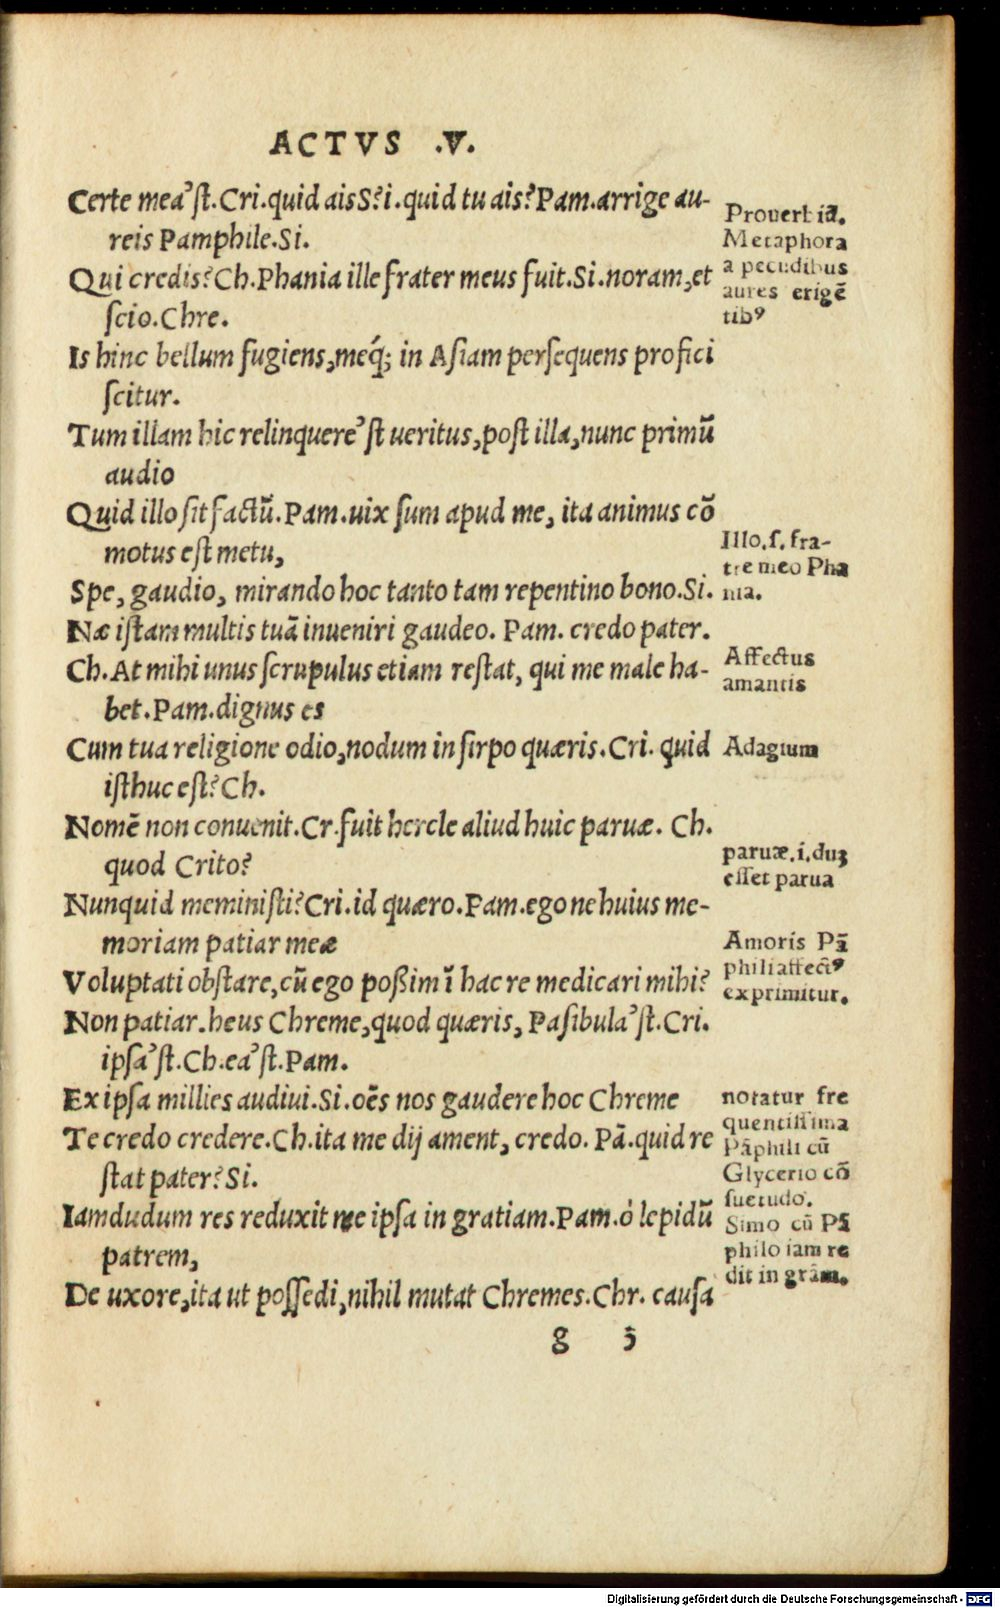 ACTVS .V.
Certe mea'st. Cri. quid ais S?i. quid tu ais? Pam. arrige au-
reis Pamphile. Si.
Qui credis? Ch. Phania ille frater meus fuit. Si. noram, et
scio. Chre.
Is hinc bellum fugiens, meq́; in Asiam persequens profici
scitur.
Tum illam hic relinquere'st ueritus, post illa, nunc primū
audio
Quid illo sit factū. Pam. uix sum apud me, ita animus cō
motus est metu,
Spe, gaudio, mirando hoc tanto tam repentino bono. Si.
Næ istam multis tuā inueniri gaudeo. Pam. credo pater.
Ch. At mihi unus scrupulus etiam restat, qui me male ha-
bet. Pam. dignus es
Cum tua religione odio, nodum in sirpo quæris. Cri. quid
isthuc est? Ch.
Nomē non conuenit. Cr. fuit hercle aliud huic paruæ. Ch.
quod Crito?
Nunquid meministi? Cri. id quæro. Pam. ego ne huius me-
moriam patiar meæ
Voluptati obstare, cū ego possim ī hac re medicari mihi?
Non patiar. heus Chreme, quod quæris, Pasibula'st. Cri.
ipsa'st. Ch. ea'st. Pam.
Ex ipsa millies audiui. Si. oēs nos gaudere hoc Chreme
Te credo credere. Ch. ita me dij ament, credo. Pā. quid re
stat pater? Si.
Iamdudum res reduxit me ipsa in gratiam. Pam. ô lepidū
patrem,
De uxore, ita ut possedi, nihil mutat Chremes. Chr. causa
g 3
Prouerbiā.
Metaphora
a pecudibus
aures erigē
tibꝰ
Illo. s. fra-
tre meo Pha
nia.
Affectus
amantis
Adagium
paruæ. i. duꝫ
esset parua
Amoris Pā
phili affectꝰ
exprimitur.
notatur fre
quentissima
Pāphili cū
Glycerio cō
suetudo.
Simo cū Pā
philo iam re
dit in grām.
Digitalisierung gefördert durch die Deutsche Forschungsgemeinschaft - DFG